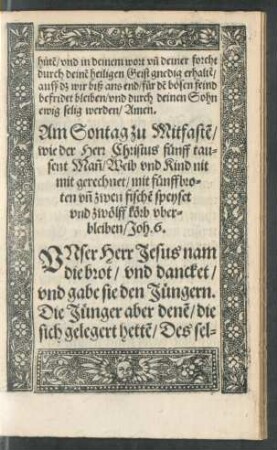 hütē/ vnd in deinem wort vñ deiner forcht
durch deinē heiligen Geist gnedig erhaltē/
auff dz wir biß ans end/ für dē bösen feind
befridet bleiben/ vnd durch deinen Sohn
ewig selig werden/ Amen.
Am Sontag zu Mitfastē/
wie der Herr Christus fünff tau-
sent Mañ/ Weib vnd Kind nit
mit gerechnet/ mit fünff bro-
ten vñ zwen fischē speyset
vnd zwölff körb vber-
bleiben/ Joh. 6.
VNser Herr Jesus nam
die brot/ vnd dancket/
vnd gabe sie den Jüngern.
Die Jünger aber denē/ die
sich gelegert hettē/ Des sel-